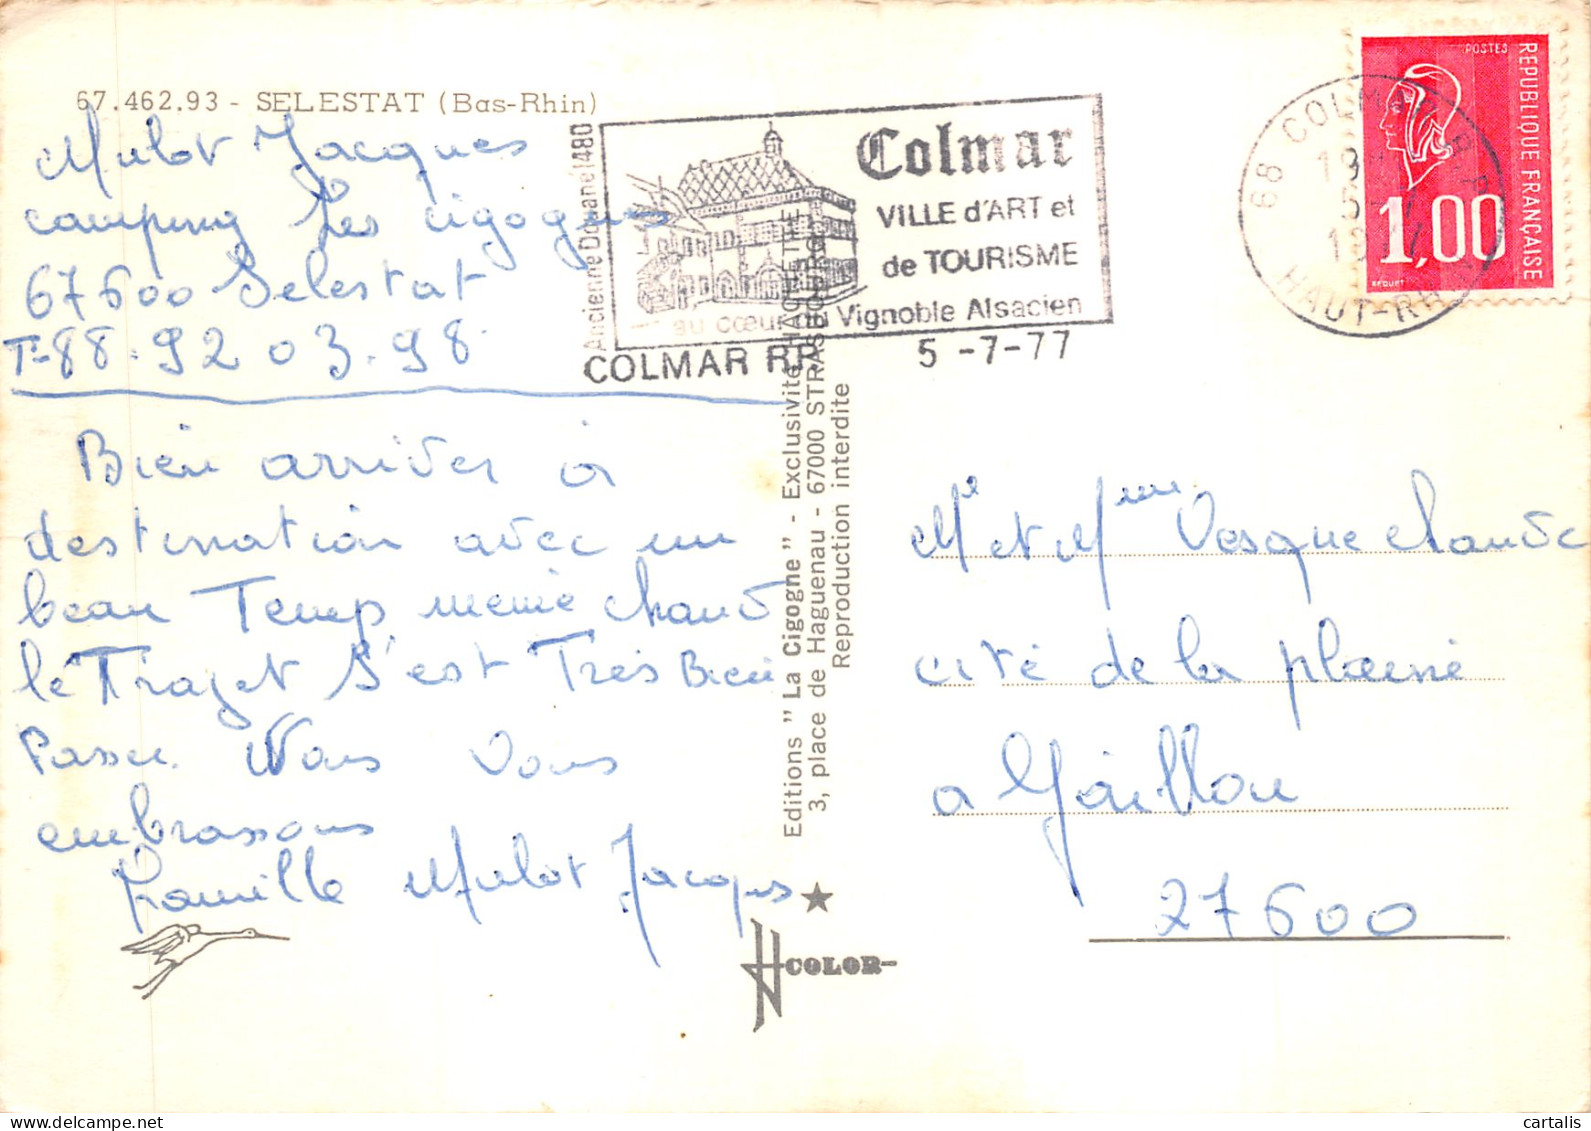 67.462.93 - SELESTAT (Bas-Rhin)
Mulot Jacques
camping les cigognes
67600 Selestat
T-88.92 03.98
Bien arriver à
destination avec un
beau Temp même chaud
le Trajet s'est Très Bien
Passer. Nous vous
embrassons
Famille Mulot Jacques
Ancienne Douane 1480
Colmar
VILLE d'ART et
de TOURISME
au cœur du Vignoble Alsacien
COLMAR RP 5 -7-77
Editions " La Cigogne " - Exclusivité HACHETTE
3, place de Haguenau - 67000 STRASBOURG
Reproduction interdite
COLOR
68 COLMAR R.P.
5-7
1977
HAUT-RHIN
POSTES
REPUBLIQUE FRANÇAISE
1,00
BEQUET
Mr et Mme Vesque claude
cité de la plaine
a Gaillon
27600
cartalis